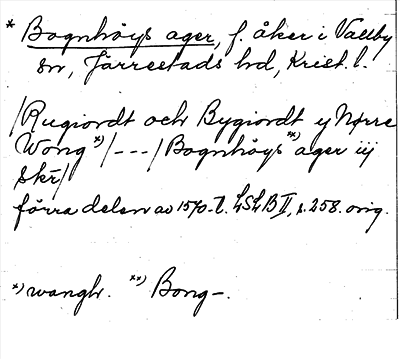 * Bognhöys ager, f. åker i Vallby
sn, Järrestads hd, Krist. l.
/Rugiordt och Bygiordt y Nørre
Wong *)/---/Bognhöys **) ager iij
skr̄/
förra delen av 1570-t. LSLB II, s. 258. orig.
*) wangh. **) Bong-.